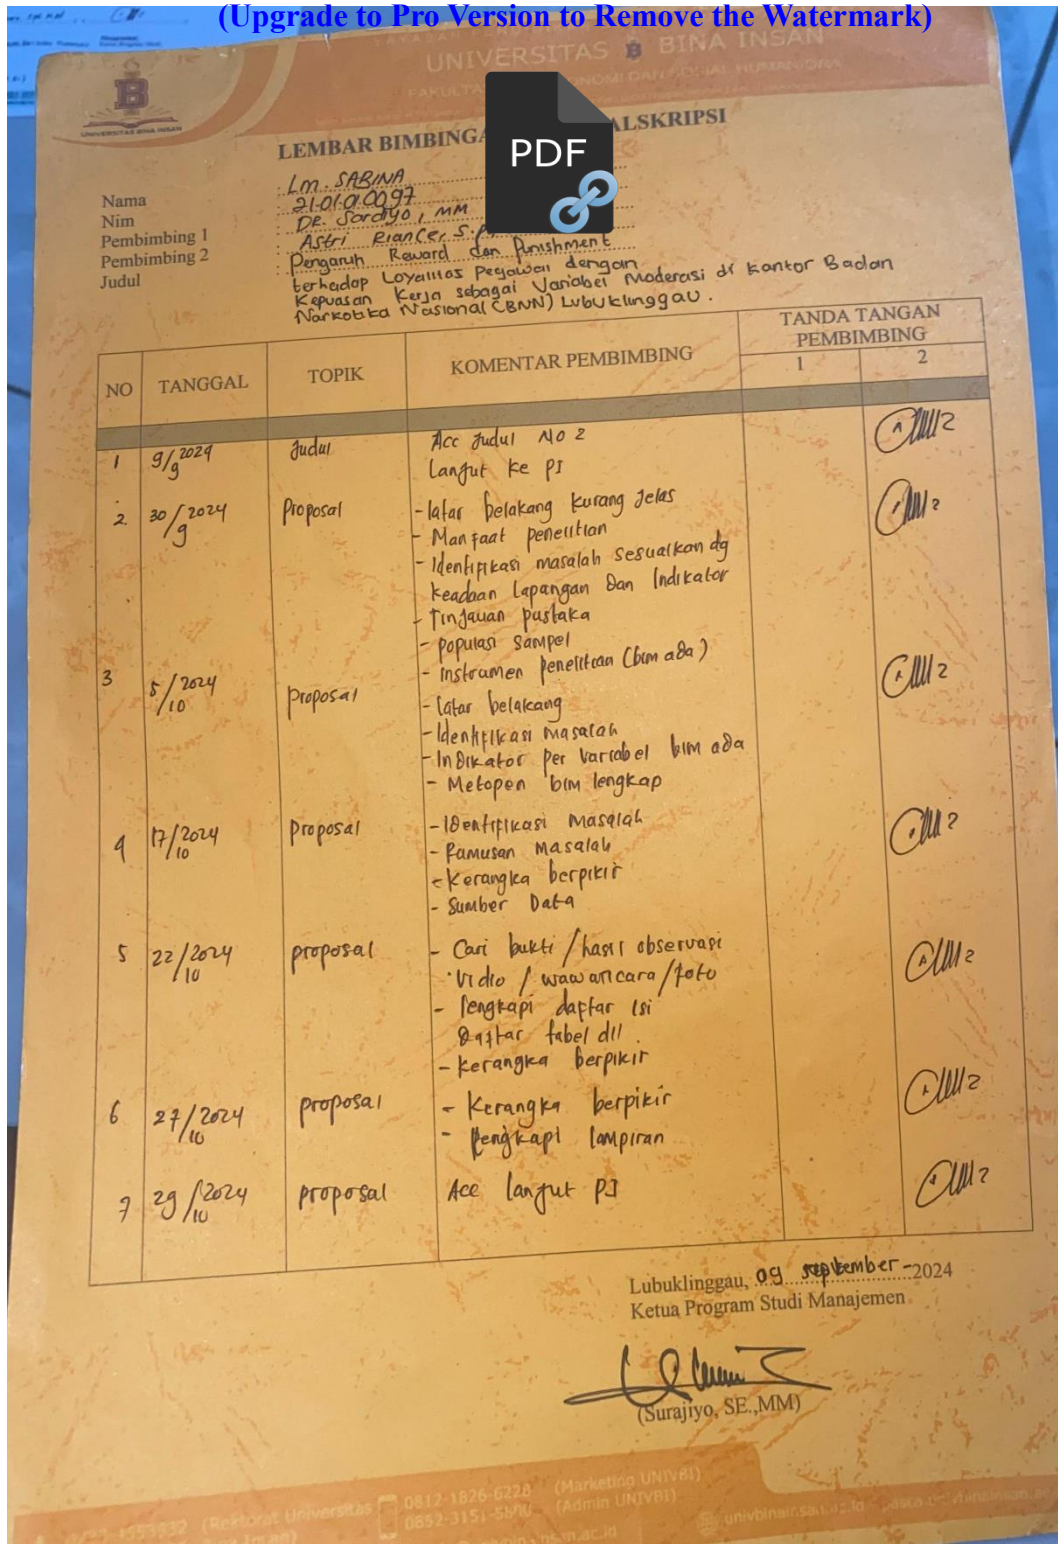 (Upgrade to Pro Version to Remove the Watermark)
UNIVERSITAS BINA INSAN
UNIVERSITAS BINA INSAN
PDF
LEMBAR BIMBINGA ALSKRIPSI
Nama : Lm. SABINA
Nim : 2101010097
Pembimbing 1 : DR. Sardiyo, MM
Pembimbing 2 : Astri Riance, S.P
Judul : Pengaruh Reward dan Punishment
terhadap Loyalitas Pegawai dengan
Kepuasan Kerja sebagai Variabel Moderasi di Kantor Badan
Narkotika Nasional (BNN) Lubuklinggau.
NO TANGGAL TOPIK KOMENTAR PEMBIMBING TANDA TANGAN
PEMBIMBING
1 2
1 9/9 2024 Judul Acc Judul No 2
Lanjut ke PI
2. 30/9 2024 Proposal - latar belakang kurang jelas
- Manfaat penelitian
- Identifikasi masalah sesuaikan dg
keadaan Lapangan dan Indikator
- Tinjauan pustaka
- populasi sampel
- instrumen penelitian (blm ada)
3 5/10 2024 proposal - latar belakang
- Identifikasi masalah
- Indikator per variabel blm ada
- Metopen blm lengkap
4 17/10 2024 proposal - Identifikasi masalah
- Rumusan masalah
- Kerangka berpikir
- Sumber Data
5 22/10 2024 proposal - Cari bukti / hasil observasi
vidio / wawancara / foto
- lengkapi daftar isi
Daftar tabel dll.
- kerangka berpikir
6 27/10 2024 proposal - Kerangka berpikir
- lengkapi lampiran
7 29/10 2024 proposal Acc lanjut PI
Lubuklinggau, 09 september -2024
Ketua Program Studi Manajemen
(Surajiyo, SE.,MM)
0812-1826-6228 (Marketing UNIVBI)
(Rektorat Universitas (Admin UNIVBI)